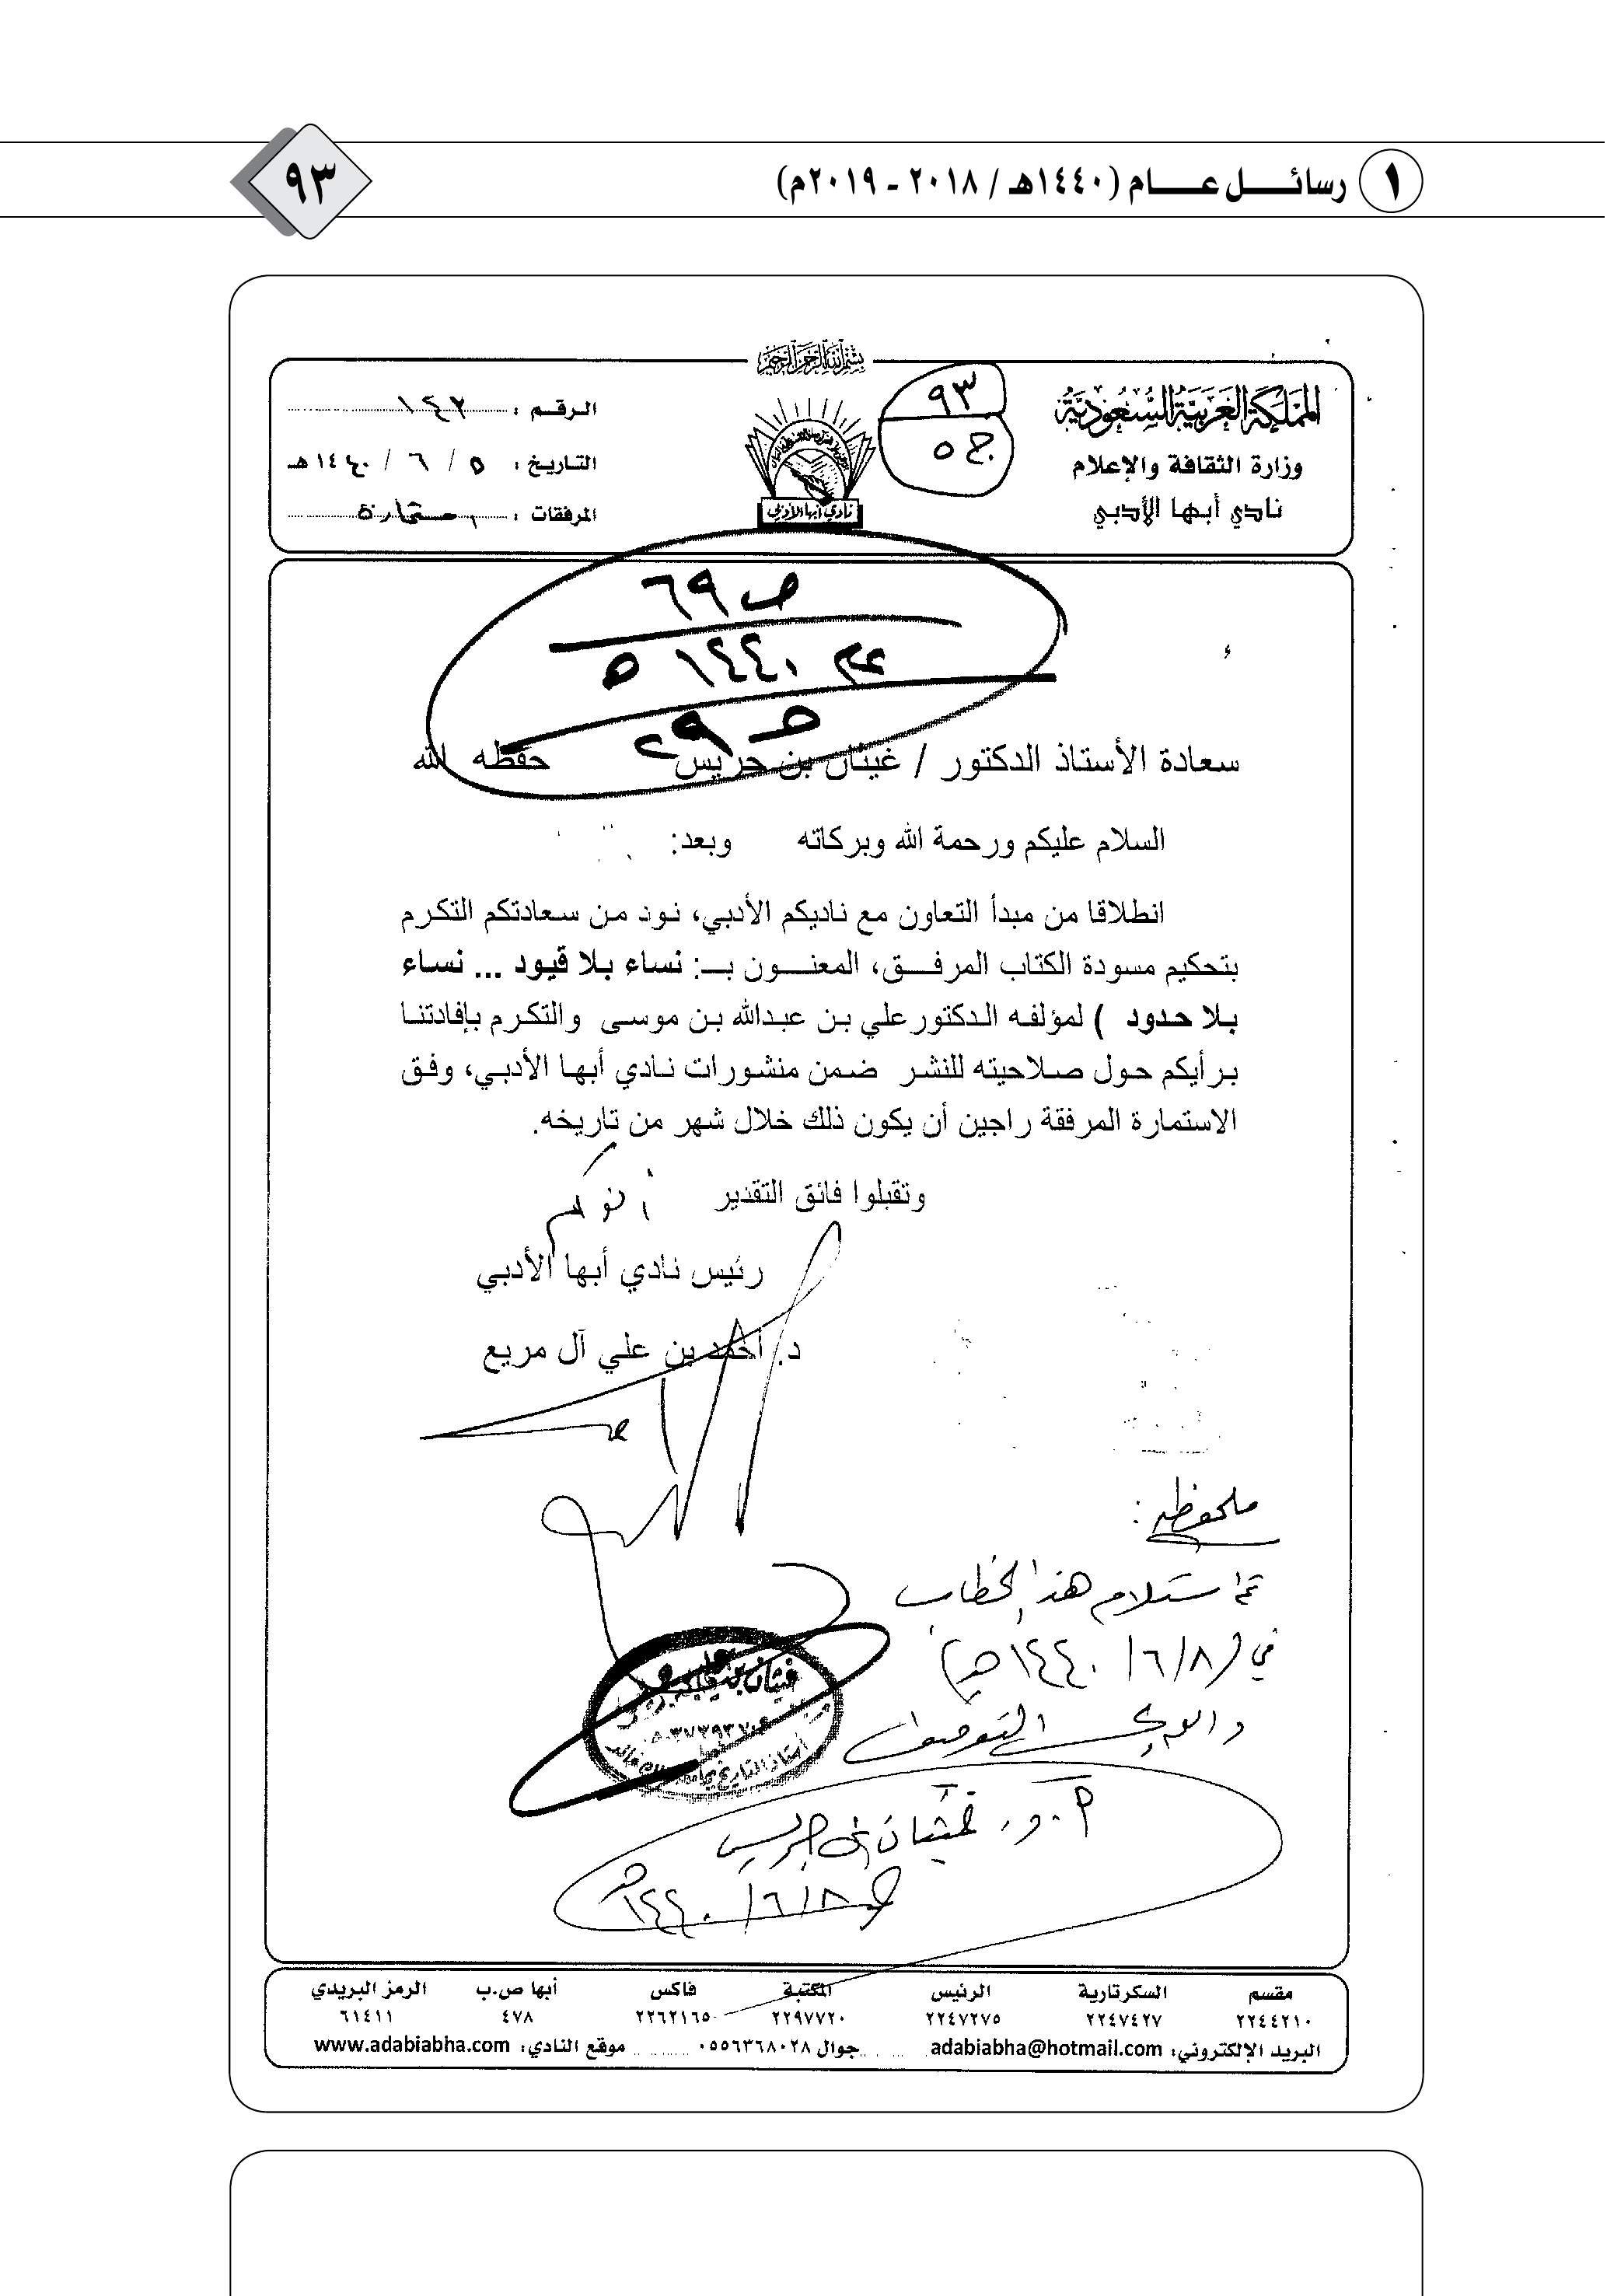 ١ رسائل عام (١٤٤٠هـ / ٢٠١٨ - ٢٠١٩م)
٩٣
بسم الله الرحمن الرحيم
المملكة العربية السعودية
وزارة الثقافة والإعلام
نادي أبها الأدبي
٩٣
ج ٥
نادي أبها الأدبي
الرقم : ١٤٢
التاريخ : ٥ / ٦ / ١٤٤٠هـ
المرفقات : استمارة
ص ٦٩
عام ١٤٤٠ هـ
سعادة الأستاذ الدكتور / غيثان بن جريس حفظه الله
السلام عليكم ورحمة الله وبركاته وبعد:
انطلاقا من مبدأ التعاون مع ناديكم الأدبي، نود من سعادتكم التكرم
بتحكيم مسودة الكتاب المرفق، المعنون بـ: نساء بلا قيود ... نساء
بلا حدود ) لمؤلفه الدكتور علي بن عبدالله بن موسى والتكرم بإفادتنا
برأيكم حول صلاحيته للنشر ضمن منشورات نادي أبها الأدبي، وفق
الاستمارة المرفقة راجين أن يكون ذلك خلال شهر من تاريخه.
وتقبلوا فائق التقدير
رئيس نادي أبها الأدبي
د. أحمد بن علي آل مريع
ملحوظة :
تم استلام هذا الخطاب
في (٨/٦/١٤٤٠هـ)
والله ولي التوفيق
أ.د. غيثان بن جريس
٨/٦/١٤٤٠هـ
مقسم السكرتارية الرئيس المكتبة فاكس أبها ص.ب الرمز البريدي
٢٢٤٤٢١٠ ٢٢٤٧٤٢٧ ٢٢٤٧٢٧٥ ٢٢٩٧٧٢٠ ٢٢٦٢١٦٥ ٤٧٨ ٦١٤١١
البريد الإلكتروني: adabiabha@hotmail.com جوال ٠٥٥٦٣٦٨٠٢٨ موقع النادي: www.adabiabha.com